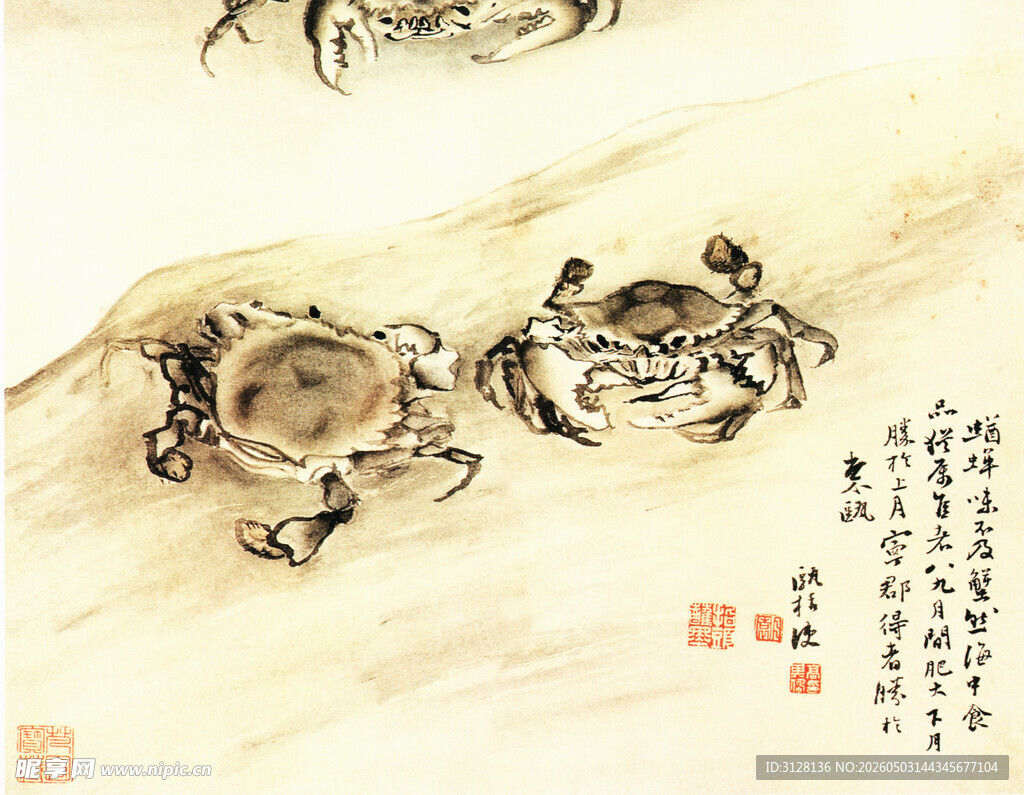 蝤蛑味不及蟹然海中食
品猶屬佳者八九月間肥大下月
勝於上月寧郡得者勝於
泰甌
昵享网 www.nipic.cn
ID:3128136 NO:20260503144345677104